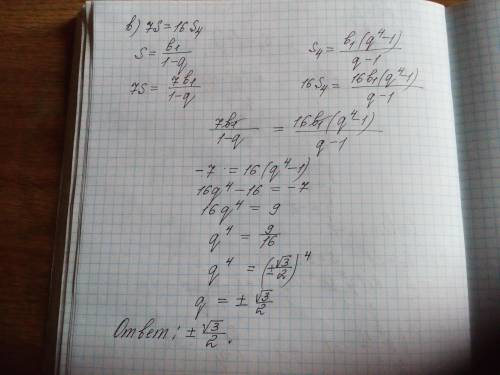 в) 7S = 16 S₄
S = b₁/(1-q)   S₄ = b₁(q⁴-1)/(q-1)
7S = 7b₁/(1-q)   16S₄ = 16b₁(q⁴-1)/(q-1)
7b₁/(1-q) = 16b₁(q⁴-1)/(q-1)
-7 = 16(q⁴-1)
16q⁴-16 = -7
16q⁴ = 9
q⁴ = 9/16
q⁴ = (±√3/2)⁴
q = ± √3/2
Ответ: ± √3/2.